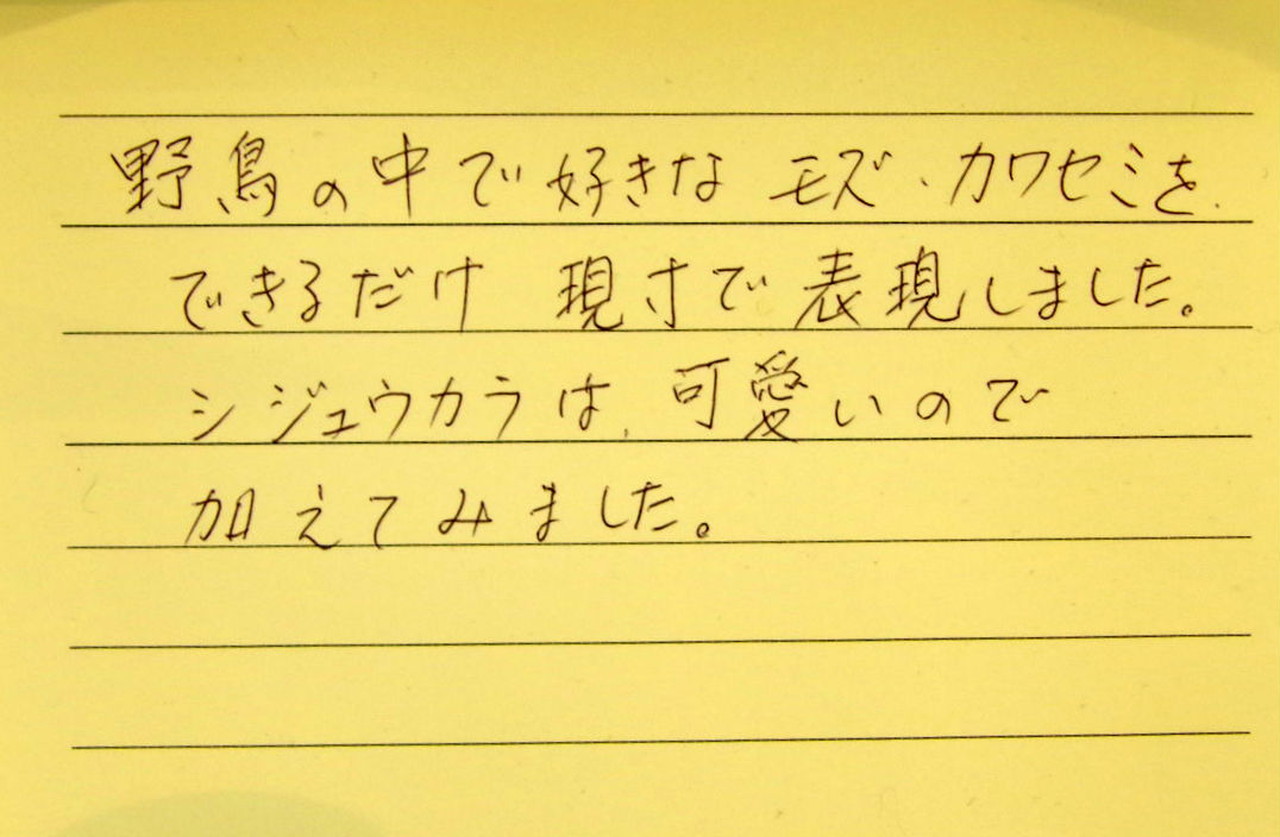 野鳥の中で好きなモズ・カワセミを
できるだけ現寸で表現しました。
シジュウカラは、可愛いので
加えてみました。